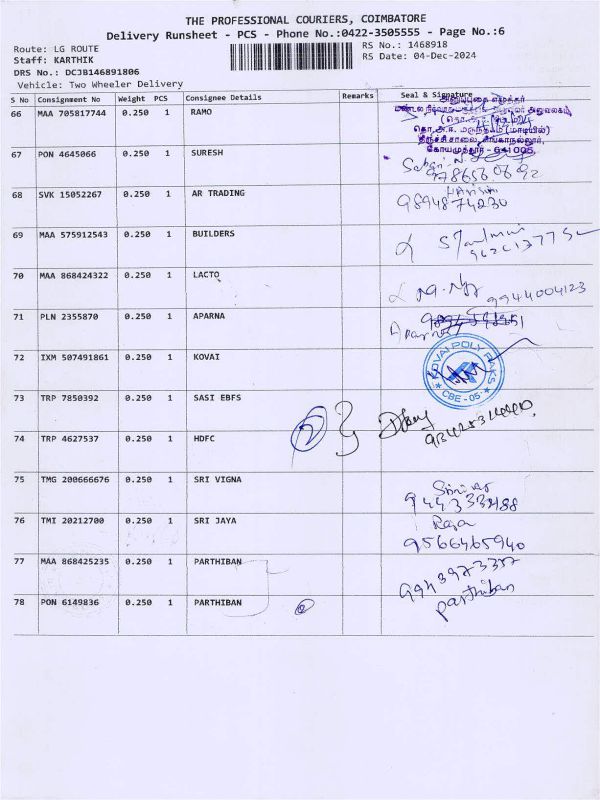 THE PROFESSIONAL COURIERS, COIMBATORE
Delivery Runsheet - PCS - Phone No.:0422-3505555 - Page No.:6
Route: LG ROUTE
RS No.: 1468918
Staff: KARTHIK
RS Date: 04-Dec-2024
DRS No.: DCJB146891806
Vehicle: Two Wheeler Delivery
S No Consignment No Weight PCS Consignee Details Remarks Seal & Signature
66 MAA 705817744 0.250 1 RAMO
(தொ.அ.ஈ.
தொ.அ.ஈ. மருந்தகம் (மாடியில்)
திருச்சி சாலை, சிங்காநல்லூர்,
கோயமுத்தூர் - 641 005.
67 PON 4645066 0.250 1 SURESH
68 SVK 15052267 0.250 1 AR TRADING
9894874230
69 MAA 575912543 0.250 1 BUILDERS
70 MAA 868424322 0.250 1 LACTO
9944004123
71 PLN 2355870 0.250 1 APARNA
72 IXM 507491861 0.250 1 KOVAI
KOVAI POLY PAKS
CBE - 05
73 TRP 7850392 0.250 1 SASI EBFS
74 TRP 4627537 0.250 1 HDFC
75 TMG 200666676 0.250 1 SRI VIGNA
76 TMI 20212700 0.250 1 SRI JAYA
Raja
9566465940
77 MAA 868425235 0.250 1 PARTHIBAN
78 PON 6149836 0.250 1 PARTHIBAN
parthiban